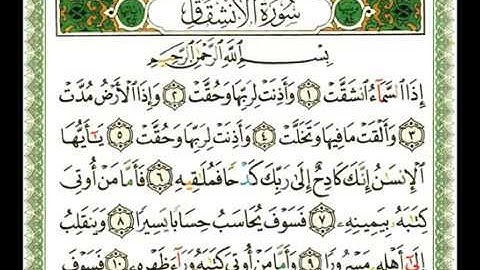 سُورَةُ الِانشِقَاقِ
بِسْمِ اللَّهِ الرَّحْمَٰنِ الرَّحِيمِ
إِذَا السَّمَاءُ انشَقَّتْ ١ وَأَذِنَتْ لِرَبِّهَا وَحُقَّتْ ٢ وَإِذَا الْأَرْضُ مُدَّتْ
٣ وَأَلْقَتْ مَا فِيهَا وَتَخَلَّتْ ٤ وَأَذِنَتْ لِرَبِّهَا وَحُقَّتْ ٥ يَٰأَيُّهَا
الْإِنسَٰنُ إِنَّكَ كَادِحٌ إِلَىٰ رَبِّكَ كَدْحًا فَمُلَٰقِيهِ ٦ فَأَمَّا مَنْ أُوتِيَ
كِتَٰبَهُ بِيَمِينِهِ ٧ فَسَوْفَ يُحَاسَبُ حِسَابًا يَسِيرًا ٨ وَيَنقَلِبُ
إِلَىٰ أَهْلِهِ مَسْرُورًا ٩ وَأَمَّا مَنْ أُوتِيَ كِتَٰبَهُ وَرَاءَ ظَهْرِهِ ١٠ فَسَوْفَ